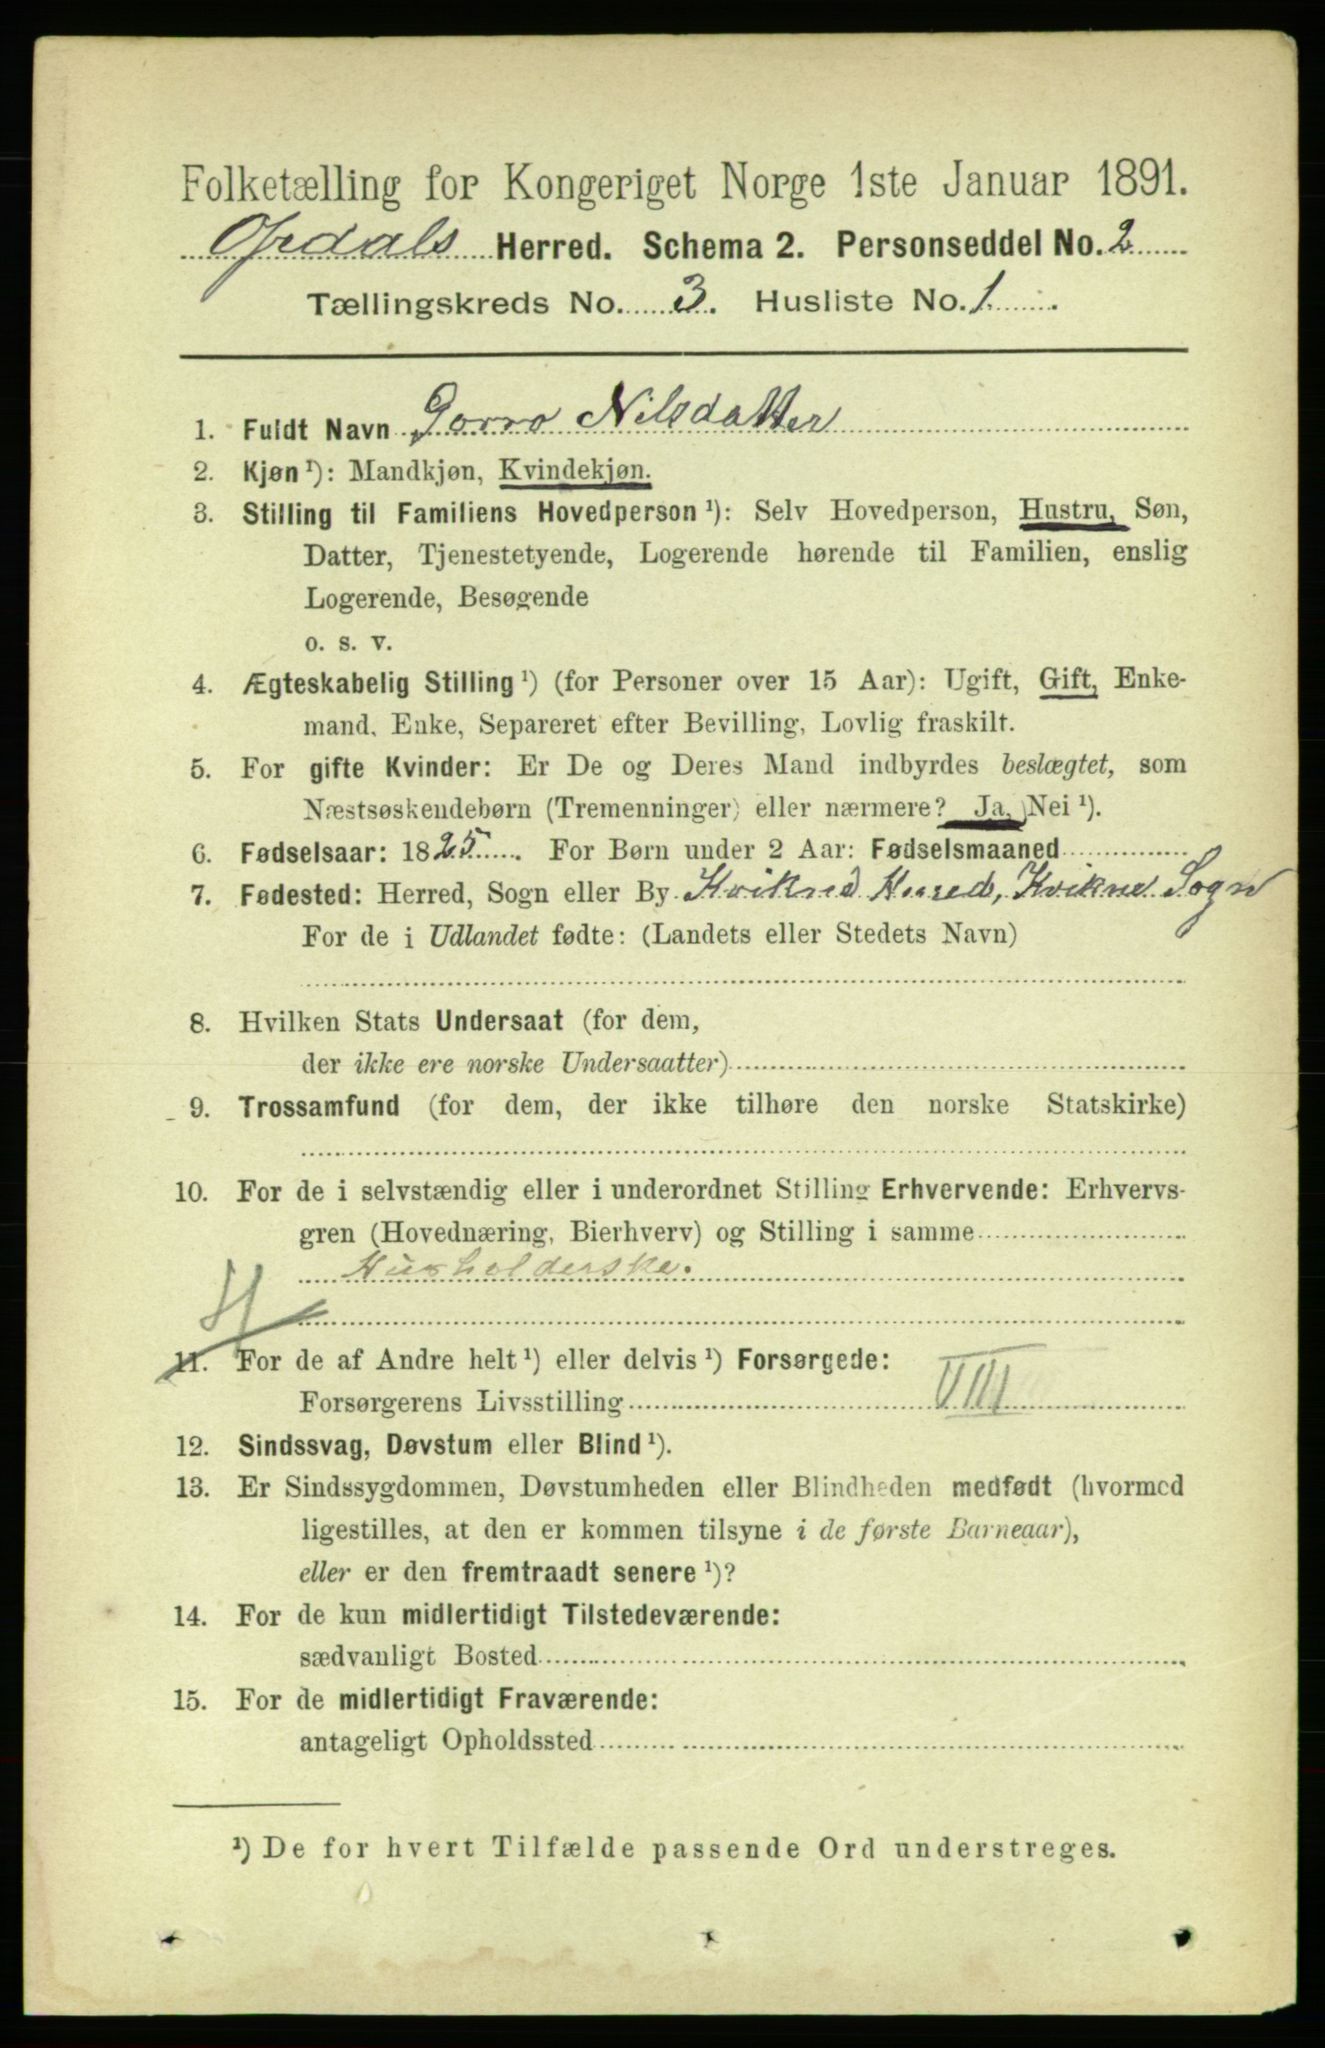 Folketælling for Kongeriget Norge 1ste Januar 1891.
Herred. Schema 2. Personseddel No. 2
Tællingskreds No. 3. Husliste No. 1.
1. Fuldt Navn Nilsdatter
2. Kjøn ¹): Mandkjøn, Kvindekjøn.
3. Stilling til Familiens Hovedperson ¹): Selv Hovedperson, Hustru, Søn,
Datter, Tjenestetyende, Logerende hørende til Familien, enslig
Logerende, Besøgende
o. s. v.
4. Ægteskabelig Stilling ¹) (for Personer over 15 Aar): Ugift, Gift, Enke-
mand, Enke, Separeret efter Bevilling, Lovlig fraskilt.
5. For gifte Kvinder: Er De og Deres Mand indbyrdes beslægtet, som
Næstsøskendebørn (Tremenninger) eller nærmere? Ja, Nei ¹).
6. Fødselsaar: 1825. For Børn under 2 Aar: Fødselsmaaned
7. Fødested: Herred, Sogn eller By Kvikne Herred, Kvikne Sogn
For de i Udlandet fødte: (Landets eller Stedets Navn)
8. Hvilken Stats Undersaat (for dem,
der ikke ere norske Undersaatter)
9. Trossamfund (for dem, der ikke tilhøre den norske Statskirke)
10. For de i selvstændig eller i underordnet Stilling Erhvervende: Erhvervs-
gren (Hovednæring, Bierhverv) og Stilling i samme
Husholderske.
11. For de af Andre helt ¹) eller delvis ¹) Forsørgede:
Forsørgerens Livsstilling VIII
12. Sindssvag, Døvstum eller Blind ¹).
13. Er Sindssygdommen, Døvstumheden eller Blindheden medfødt (hvormed
ligestilles, at den er kommen tilsyne i de første Barneaar),
eller er den fremtraadt senere ¹)?
14. For de kun midlertidigt Tilstedeværende:
sædvanligt Bosted
15. For de midlertidigt Fraværende:
antageligt Opholdssted
¹) De for hvert Tilfælde passende Ord understreges.